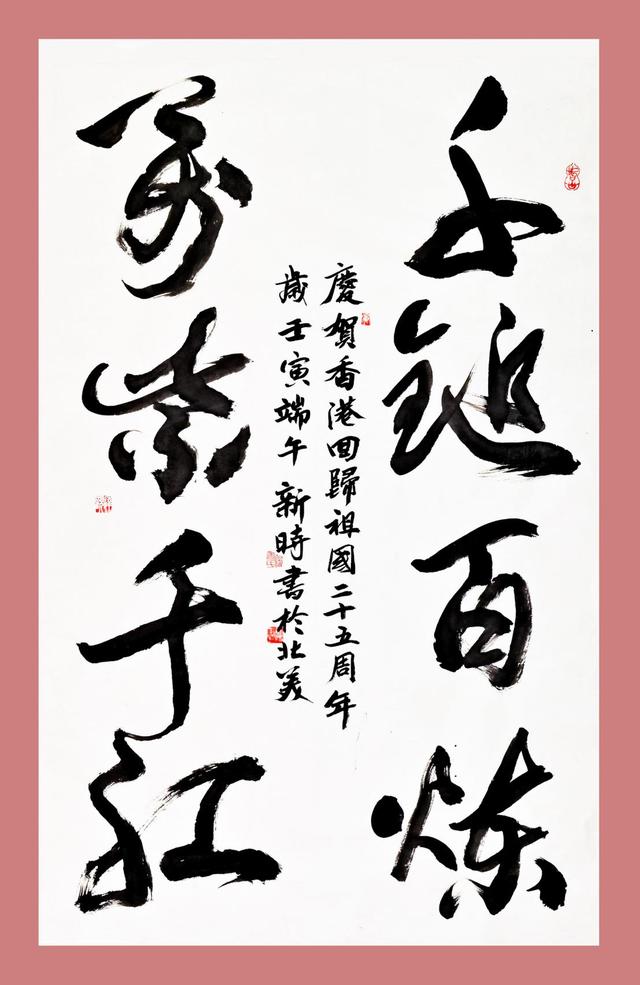 千錘百炼
慶賀香港回歸祖國二十五周年
歲壬寅端午新時書於北美
萬紫千红